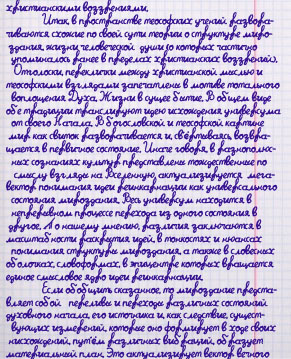 христианскими воззрениями.
Итак, в пространстве теософских учений развора-
чиваются схожие по своей сути теории о структуре миро-
здания, жизни человеческой души (о которых частично
упоминалось ранее в пределах христианских воззрений).
Отголоски, переклички между христианской мыслью и
теософскими взглядами запечатлены в мотиве тотального
воплощения Духа, Жизни в сущее бытие. В общем виде
обе традиции транслируют идею нисхождения универсума
от своего Начала. В богословской и теософской картине
мир как свиток разворачивается и, свёртываясь, возвра-
щается в первичное состояние. Иначе говоря, в разнополюс-
ных сознаниях культур представлены тождественные по
смыслу взгляды на Вселенную, актуализируется мега-
вектор понимания идеи реинкарнации как универсального
состояния мироздания. Весь универсум находится в
непрерывном процессе перехода из одного состояния в
другое. А по нашему мнению, различия заключаются в
масштабности раскрытия идей, в тонкостях и нюансах
понимания структуры мироздания, а также в словесных
оболочках, словоформах, в эпицентре которых вращается
единое смысловое ядро идеи реинкарнации.
Если обобщить сказанное, то мироздание предста-
вляет собой переливы и переходы различных состояний
духовного начала, его источника и, как следствие, сущест-
вующих измерений, которые оно формирует в ходе своих
нисхождений, путём различных вибраций, образует
материальный план. Это актуализирует вектор вечного